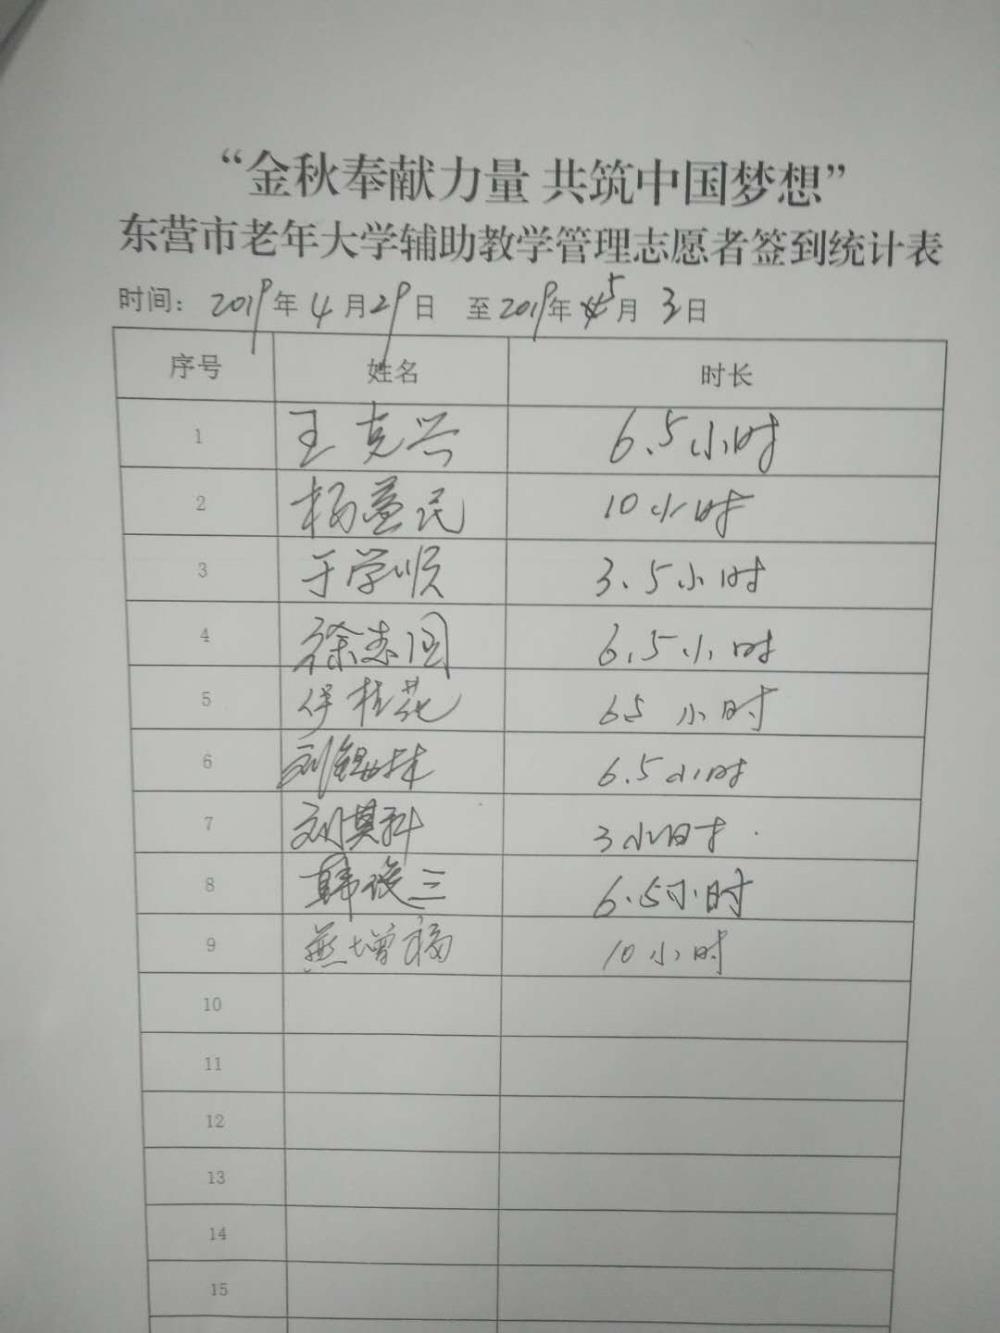 “金秋奉献力量 共筑中国梦想”
东营市老年大学辅助教学管理志愿者签到统计表
时间: 2019年4月29日 至2019年5月3日
序号 姓名 时长
1 王克兴 6.5小时
2 杨益民 10小时
3 于学顺 3.5小时
4 徐志国 6.5小时
5 桂花 65 小时
6 刘锡林 6.5小时
7 刘其科 3小时
8 韩俊三 6.5小时
9 燕增福 10小时
10
11
12
13
14
15